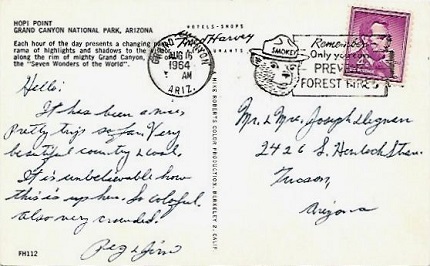 HOPI POINT
GRAND CANYON NATIONAL PARK, ARIZONA
Each hour of the day presents a changing
rama of highlights and shadows to the
along the rim of mighty Grand Canyon,
the "Seven Wonders of the World".
HOTELS-SHOPS
Fred Harvey
GRAND CANYON
AUG 16
AM
1964
ARIZ.
SMOKEY
Remember
Only you
PREVENT
FOREST FIRES
Hello:
It has been a nice
pretty trip so far. Very
beautiful country & cool.
It is unbelievable how
this is up here. So colorful.
Also very crowded.
Peg & Jim
FH112
MIKE ROBERTS COLOR PRODUCTION, BERKELEY 2, CALIF
Mr. & Mrs. Joseph
2426 S.
Tucson,
Arizona